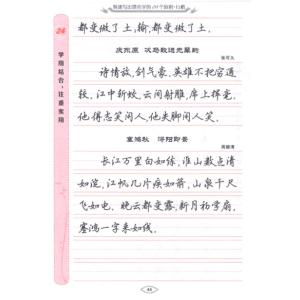 都变做了土;输,都变做了土。
庆东原 次马致远先辈韵
张可久
诗情放,剑气豪,英雄不把穷通
较。江中斩蛟,云间射雕,席上挥毫。
他得志笑闲人,他失脚闲人笑。
塞鸿秋 浔阳即景
周德清
长江万里白如练,淮山数点青
如淀,江帆几片疾如箭,山泉千尺
飞如电。晚云都变露,新月初学扇,
塞鸿一字来如线。
24
学用结合,注重实用